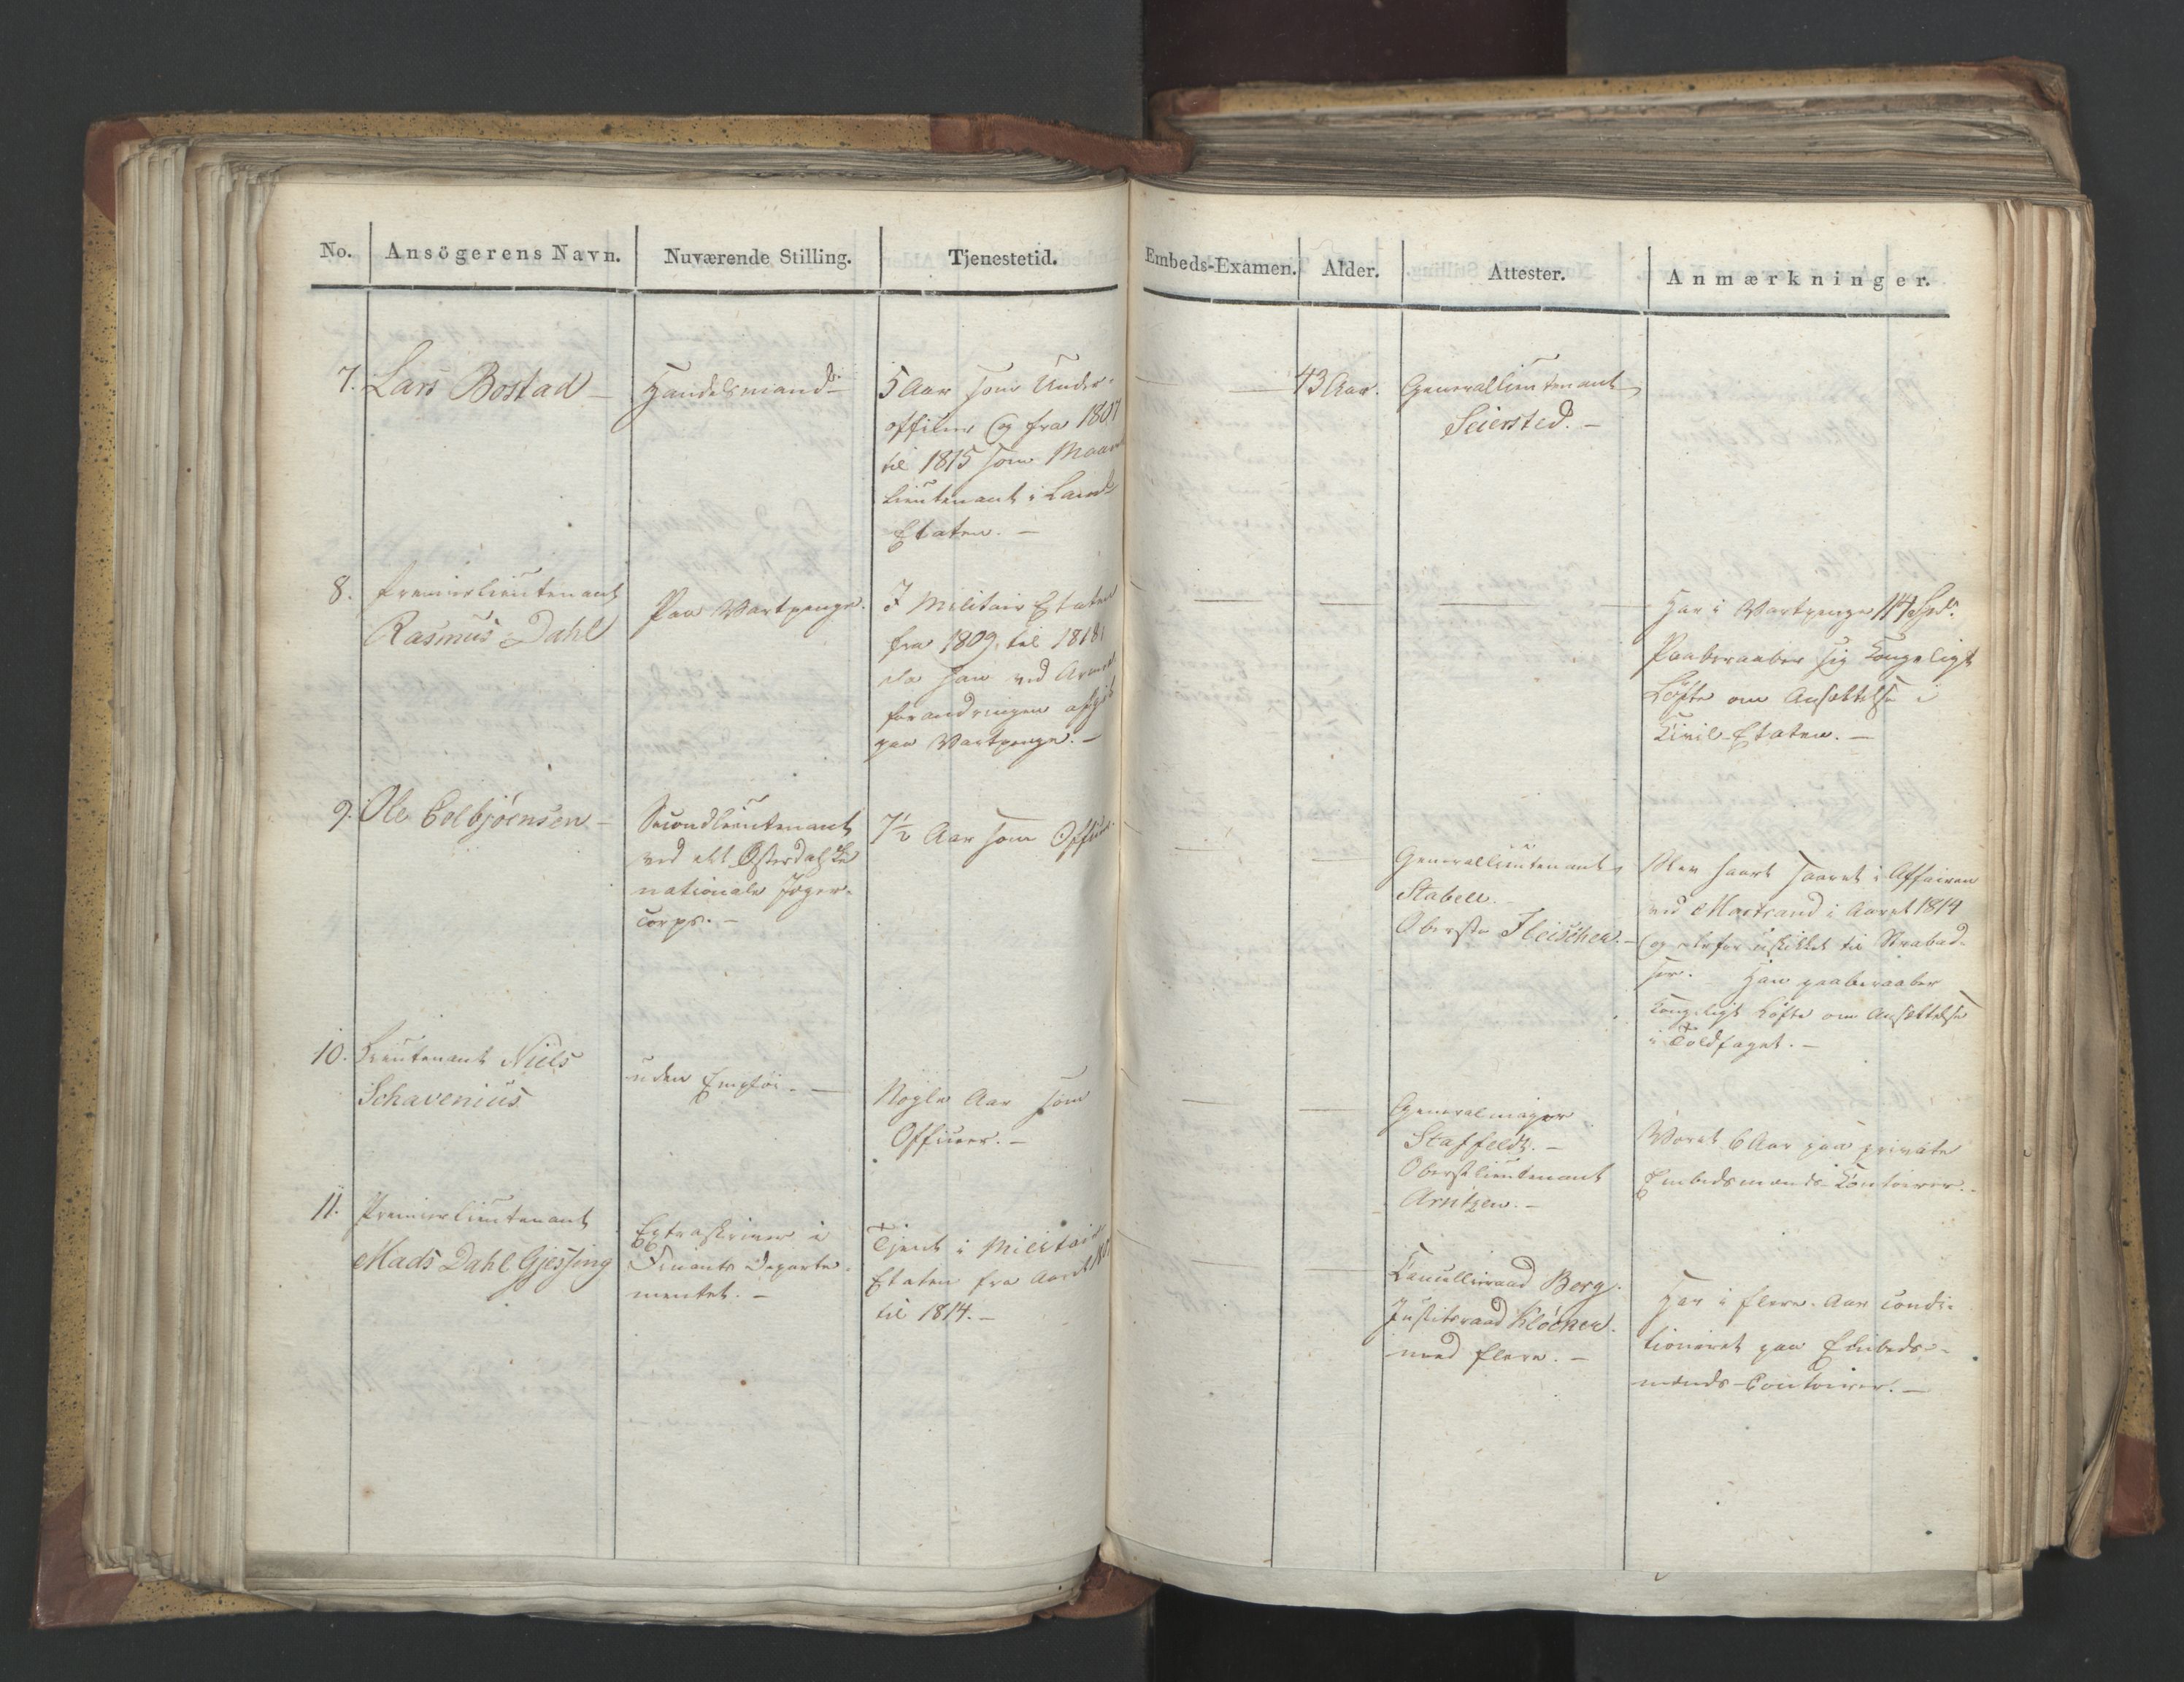 No. Ansögerens Navn. Nuværende Stilling. Tjenestetid. Embeds-Examen. Alder. Attester. Anmærkninger.
7. Lars Bostad — Handelsmand.
5 Aar som Under-
officeer og fra 1807
til 1815 som
Lieutenant i Land-
Etaten. —
— 43 Aar.
Generallieutenant
Seiersted. —
8. Premierlieutenant
Rasmus Dahl
Paa Vartpenge.
I Militair Etaten
fra 1809 til 1818,
da han ved Armee
forandringen afgik
paa Vartpenge. —
Har i Vartpenge 114 Spd.
Paaberaaber sig Kongeligt
Løfte om Ansættelse i
Civil-Etaten. —
9. Ole Colbjörnsen —
Secondlieutenant
ved det Østerdalske
nationale Jæger-
corps. —
7½ Aar som Officeer
Generallieutenant
Stabell. —
Oberste Fleischer. —
Blev haart saaret i Affairen
ved Mastrand i Aaret 1814
og derfor uskikket til Strabad-
ser. Han paaberaaber
Kongeligt Løfte om Ansættelse
i Toldfaget. —
10. Lieutenant Niels
Schavenius
uden Emploi. —
Nogle Aar som
Officeer. —
Generalmajor
Staffeldt. —
Oberstlieutenant
Arntzen. —
Været 6 Aar paa private
Embedsmænds Contoirer. —
11. Premierlieutenant
Mads Dahl Gjessing
Extraskriver i
Finants Departe-
mentet. —
Tjent i Militair
Etaten fra Aaret
til 1814. —
Cancelliraad Berg.
Justitsraad Klöcker.
med flere. —
Har i flere Aar condi-
tioneret paa Embeds-
mænds-Contoirer. —